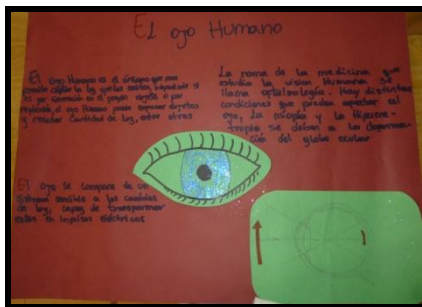 El ojo Humano
El ojo Humano es el órgano que nos
permite captar la luz que los emiten,
es por en el propio objeto o por
el ojo Humano puede objetos
y cantidad de luz, entre otros
La rama de la medicina que
estudia la vision Humana se
llama oftalmología. Hay distintas
condiciones que pueden al
ojo, La miopía y la Hiperme-
tropía se deben a la deforma-
ción del globo ocular
El ojo se compone de un
sistema sensible a los cambios
de luz, capaz de transformar
estos en impulsos eléctricos